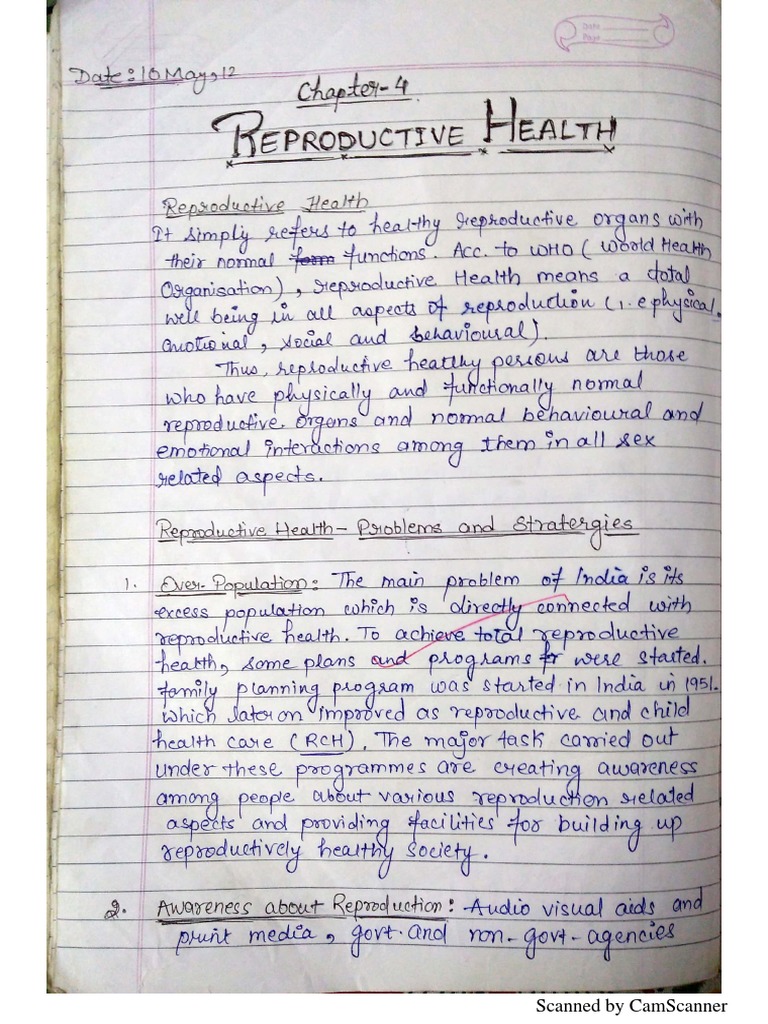 Date
Page
Date: 10 May, 12
Chapter-4
REPRODUCTIVE HEALTH
Reproductive Health
It simply refers to healthy reproductive organs with
their normal form functions. Acc. to WHO (World Health
Organisation), reproductive Health means a total
well being in all aspects of reproduction (i.e physical,
emotional, social and behavioural).
Thus, reproductive healthy persons are those
who have physically and functionally normal
reproductive organs and normal behavioural and
emotional interactions among them in all sex
related aspects.
Reproductive Health - Problems and Stratergies
1. Over-Population: The main problem of India is its
excess population which is directly connected with
reproductive health. To achieve total reproductive
health, some plans and programs were started.
family planning program was started in India in 1951.
which later on improved as reproductive and child
health care (RCH). The major task carried out
under these programmes are creating awareness
among people about various reproduction related
aspects and providing facilities for building up
reproductively healthy society.
2. Awareness about Reproduction: Audio visual aids and
print media, govt. and non-govt-agencies
Scanned by CamScanner